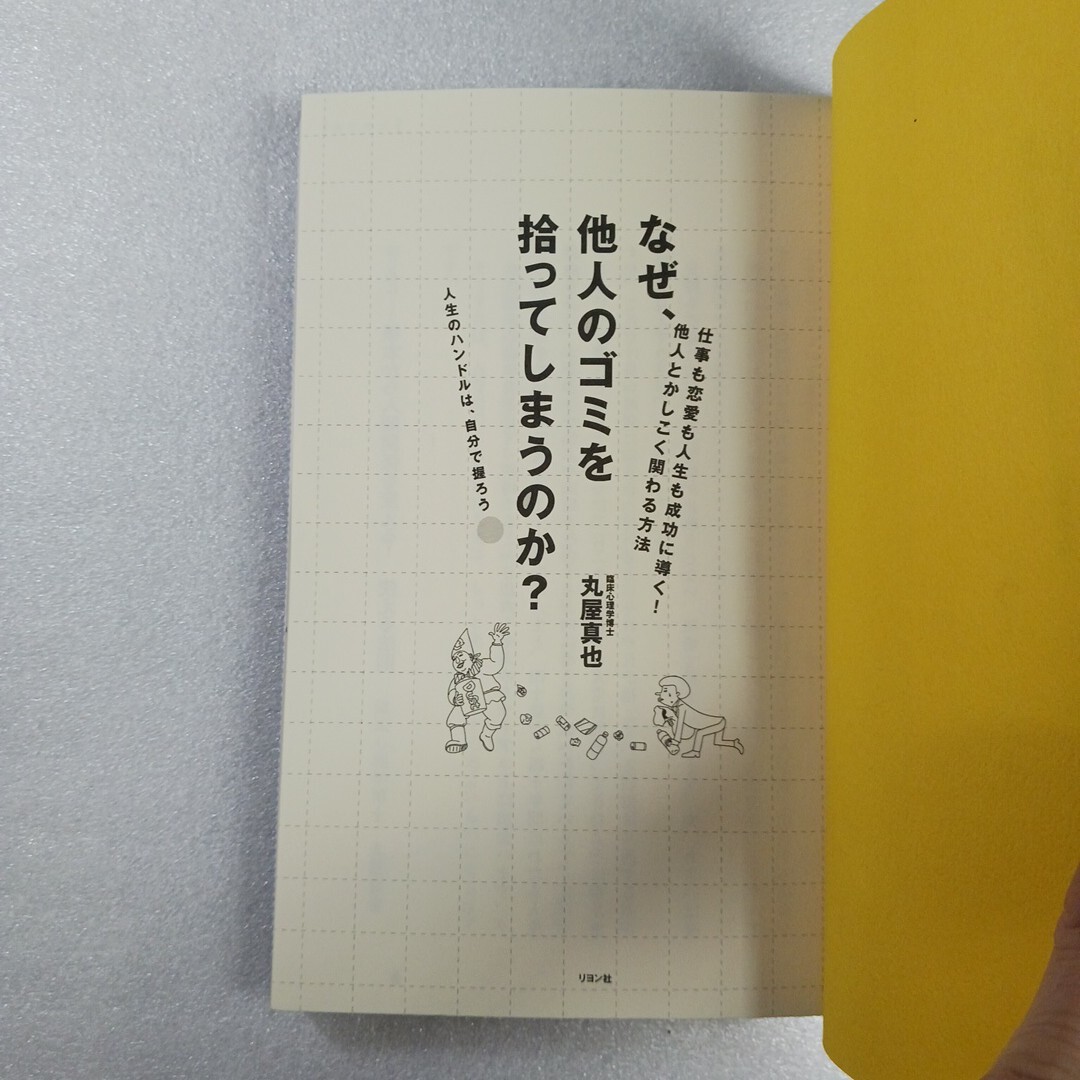 仕事も恋愛も人生も成功に導く!
他人とかしこく関わる方法
なぜ、
他人のゴミを
拾ってしまうのか?
人生のハンドルは、自分で握ろう
臨床心理学博士
丸屋真也
リヨン社